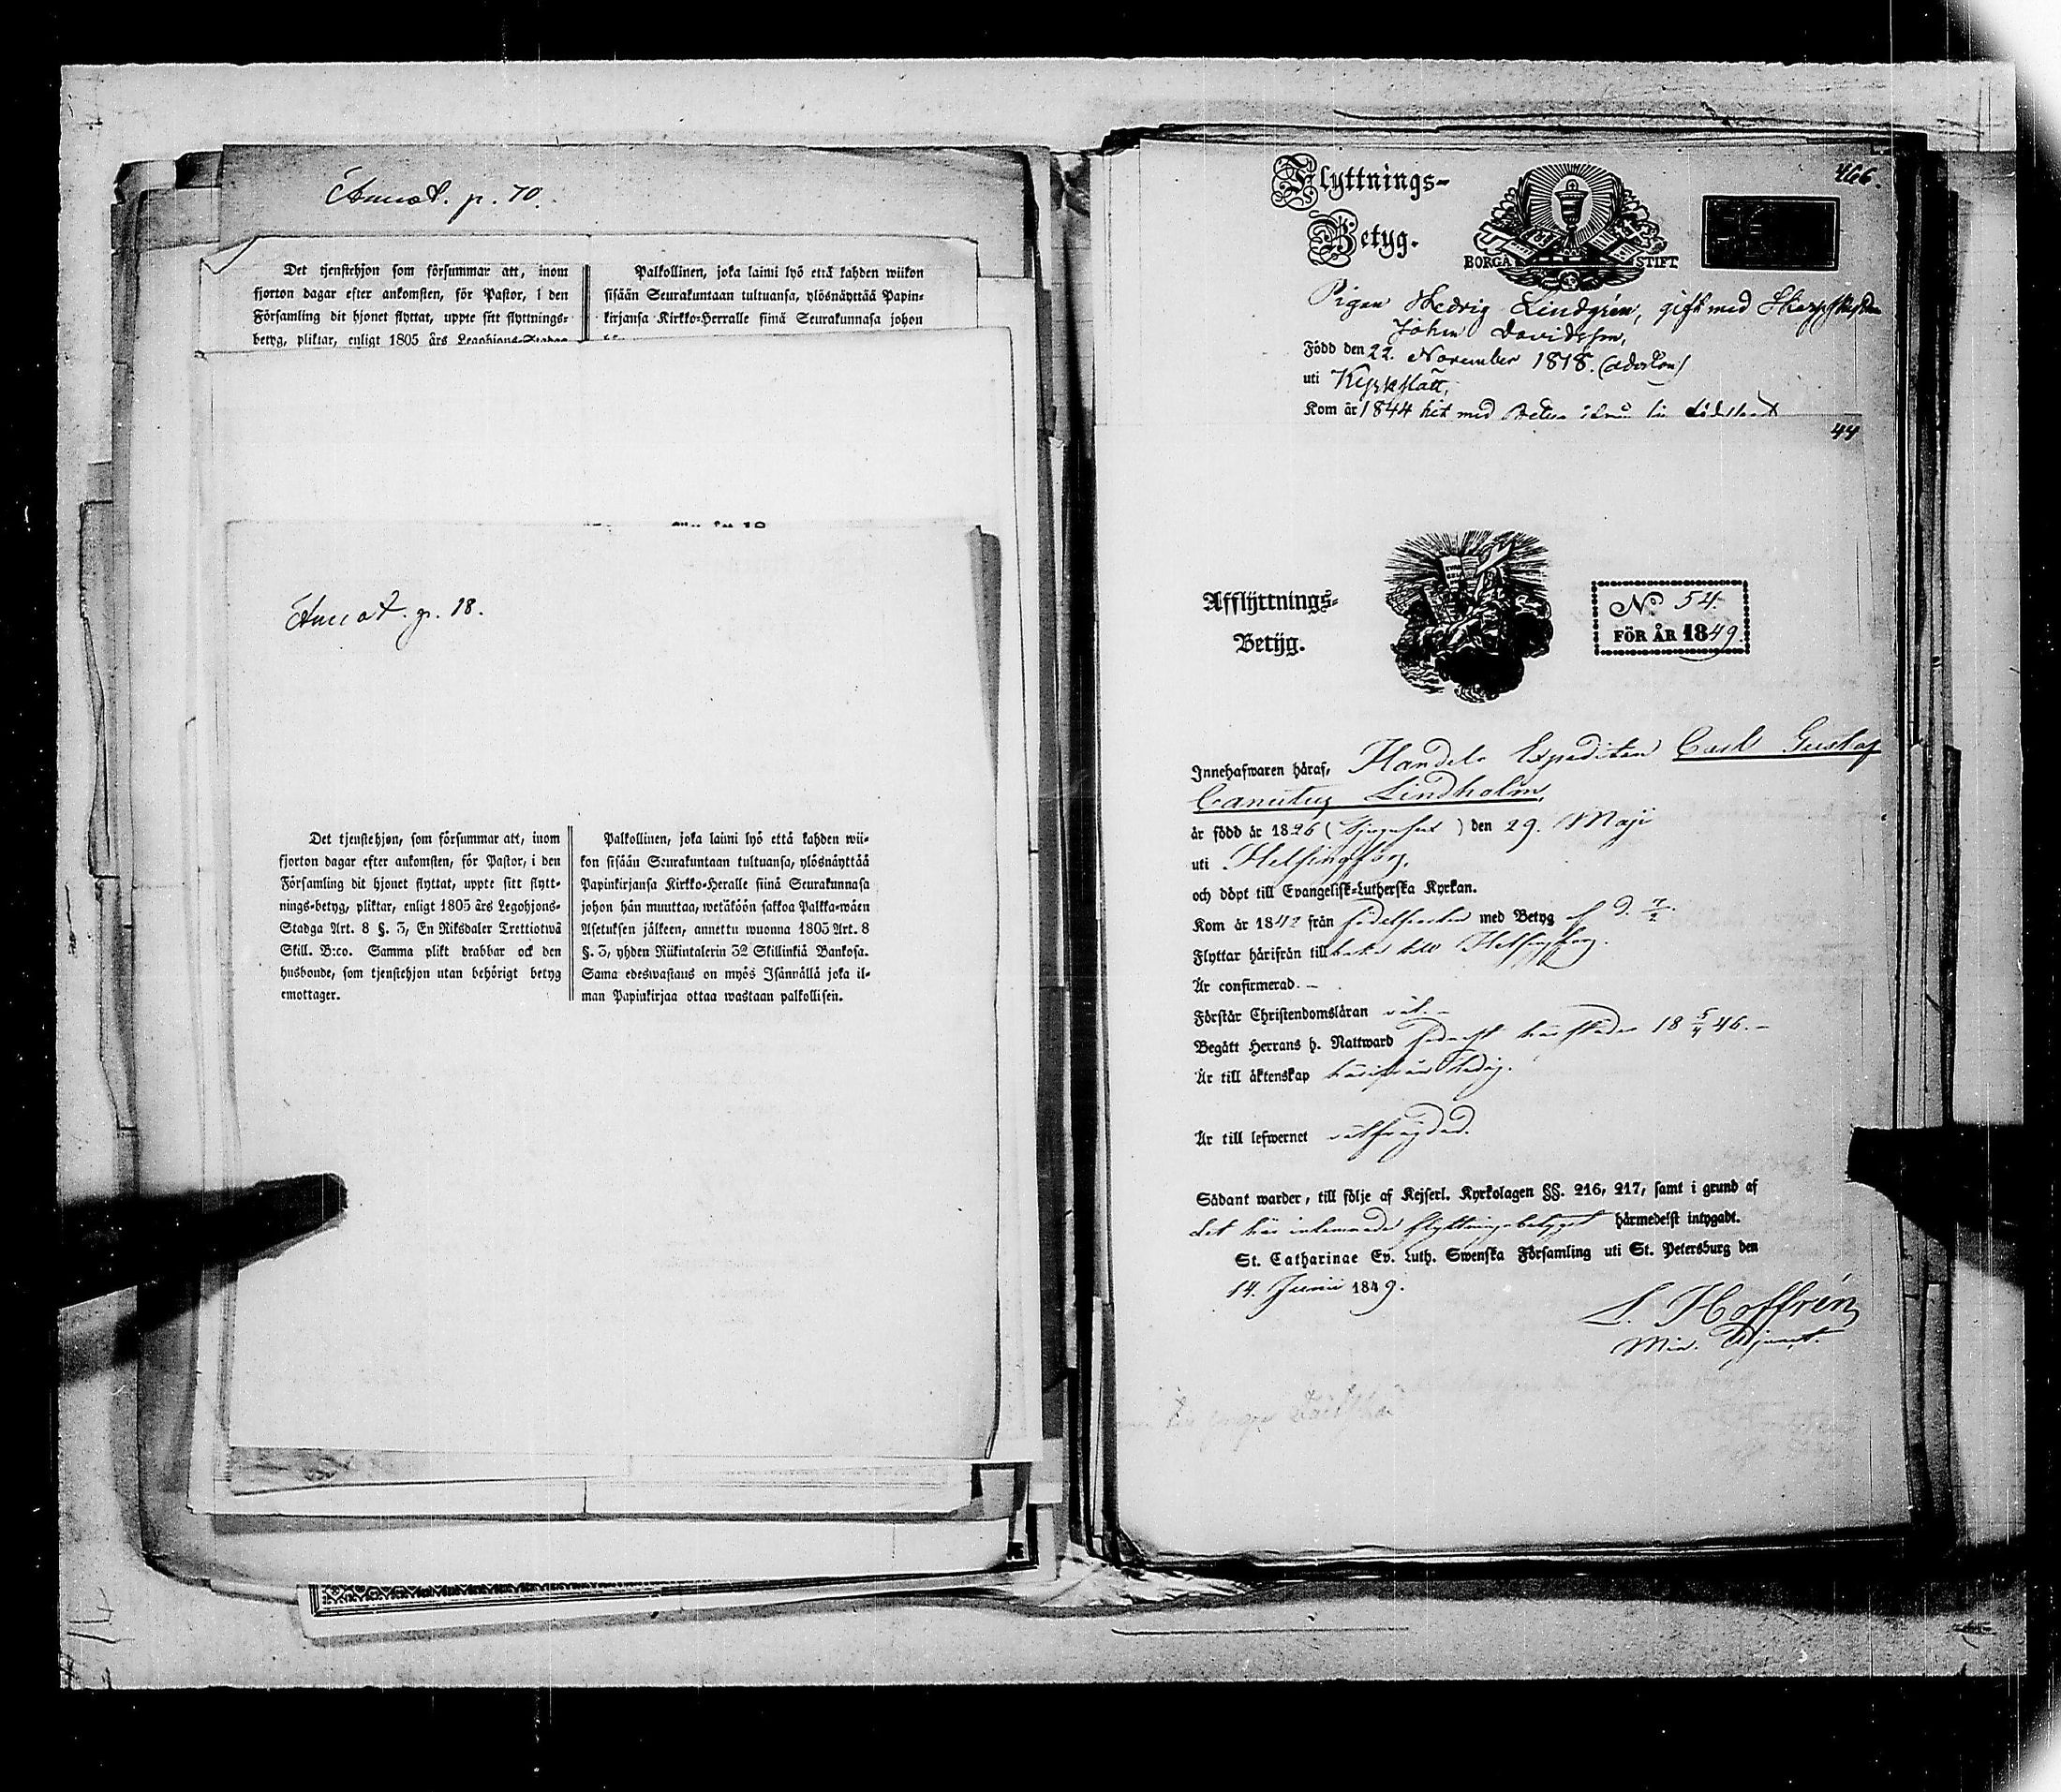 Annot. p. 70.
Det tjenstehjon som försummar att, inom
fjorton dagar efter ankomsten, för Pastor, i den
Församling dit hjonet flyttat, uppte sitt flyttnings-
betyg, pliktar, enligt 1805 års Legohjons-Stadga
Palkollinen, joka laimi lyö että kahden wiikon
sisään Seurakuntaan tultuansa, ylösnäyttää Papin-
kirjansa Kirkko-Herralle siinä Seurakunnasa johon
Annot. p. 18.
Det tjenstehjon, som försummar att, inom
fjorton dagar efter ankomsten, för Pastor, i den
Församling dit hjonet flyttat, uppte sitt flytt-
nings-betyg, pliktar, enligt 1805 års Legohjons-
Stadga Art. 8 §. 3, En Riksdaler Trettiotwå
Skill. B:co. Samma plikt drabbar ock den
husbonde, som tjenstehjon utan behörigt betyg
emottager.
Palkollinen, joka laimi lyö että kahden wii-
kon sisään Seurakuntaan tultuansa, ylösnäyttää
Papinkirjansa Kirkko-Heralle siinä Seurakunnasa
johon hän muuttaa, wetäköön sakkoa Palkka-wäen
Asetuksen jälkeen, annettu wuonna 1805 Art. 8
§. 3, yhden Riikintalerin 32 Skillinkiä Bankosa.
Sama edeswastaus on myös Isännällä joka il-
man Papinkirjaa ottaa wastaan palkollisen.
Flyttnings-
Betyg.
BORGÅ STIFT
466.
Pigan Hedvig Lindgrén, gift med
Johan Davidsson,
Född den 22. November 1818. (aderton)
uti Kyrkslätt,
Kom år 1844 hit med
44
Afflyttnings-
Betyg.
No. 54.
FÖR ÅR 1849.
Innehafwaren häraf, Handels Expediten Carl Gustaf
Canutus Lindholm,
är född år 1826 (tjugusex) den 29. Maji
uti Helsingfors,
och döpt till Evangelisk-Lutherska Kyrkan.
Kom år 1842 från födelseorten med Betyg af d. 7/2.
Flyttar härifrån tillbaka till Helsingfors.
Är confirmerad. –
Förstår Christendomsläran väl. –
Begått Herrans h. Nattward sednast härstädes 18 5/4 46. –
Är till äktenskap härifrån ledig.
Är till lefwernet välfrejdad.
Sådant warder, till följe af Kejserl. Kyrkolagen §§. 216, 217, samt i grund af
det här inlemnade flyttningsbetyget härmedelst intygadt.
St. Catharinae Ev. Luth. Swenska Församling uti St. Petersburg den
14. Junii 1849.
L. Hoffrén
Min. Adjunct.